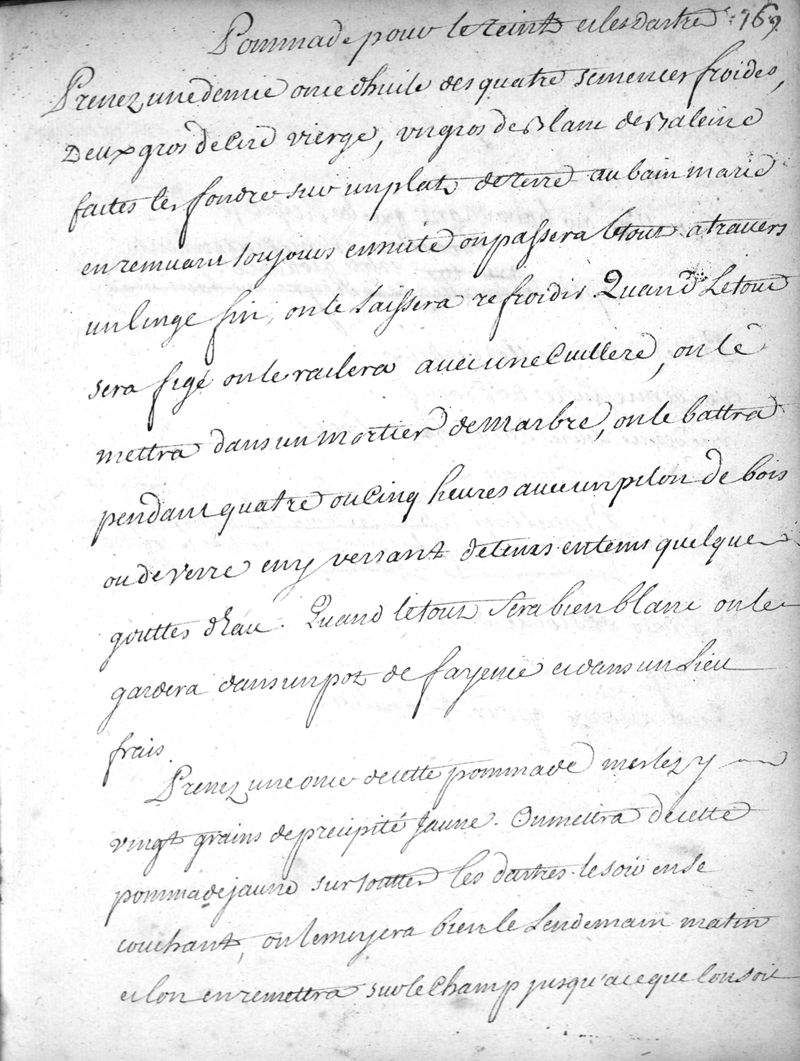 Pommade pour le teint et les dartre 169
Prenez une demie once d'huile des quatre semences froides,
Deux gros de Cire vierge, un gros de Blanc de Baleine
faites les fondre sur un plat de terre au bain marie
en remuant toujours ensuite on passera le tout a travers
un linge fin, on le Laissera refroidir Quand Le tout
sera figé on le raclera avec une Cuillere, on le
mettra dans un mortier de Marbre, on le battra
pendant quatre ou Cinq heures avec un pilon de bois
ou de verre en y versant de tems en tems quelque
gouttes d'Eau. Quand le tout Sera bien blanc on le
gardera dans un pot de fayence et dans un Lieu
frais.
Prenez une once de cette pommade meslez y
vingt grains de précipité Jaune. On mettra de cette
pommade jaune sur toutes les dartres le soir en se
couchant, on l'essuyera bien le Lendemain matin
et l'on en remettra sur le Champ jusqu'a ce que l'on soit